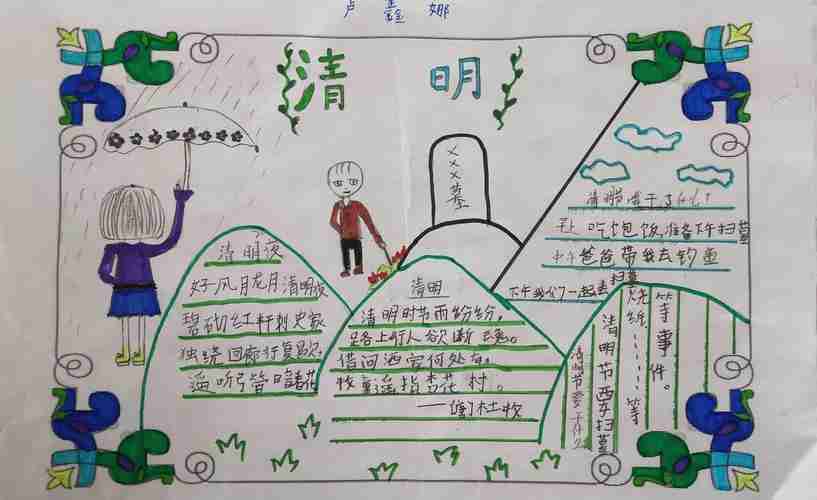 卢 鑫 娜
清 明
×××墓
清明夜
好风胧月清明夜
碧砌红轩刺史家
独绕回廊行复歇,
遥听弓管暗看花
清明
清明时节雨纷纷,
路上行人欲断魂。
借问酒家何处有,
牧童遥指杏花村。
——唐杜牧
清明节干了什么?
早上吃饱饭准备下午扫墓
中午爸爸带我去钓鱼
下午我们一起去扫墓
清明节要干什么
清明节要扫墓
烧纸………等
等事件。